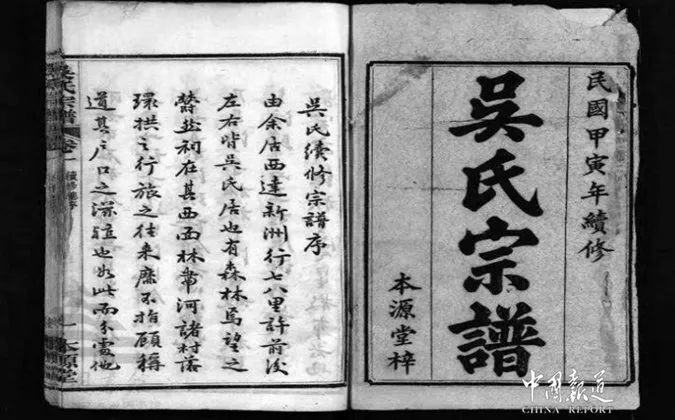 民國甲寅年續修
吳氏宗譜
本源堂梓
吳氏續修宗譜序
由余居西達新洲行七八里許前後
左右皆吳氏居也有森林焉望之
欝然祠在其西西林帶河諸村落
環拱之行旅之往來靡不指顧稱
道其戶口之深殖也如此而分處他
吳氏宗譜
卷一
一
本源堂
中國報道
CHINA REPORT